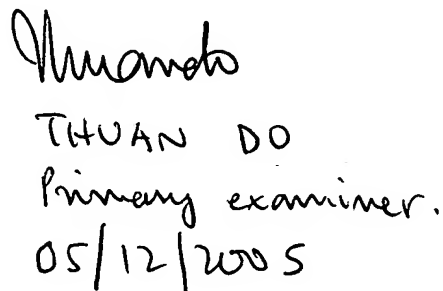 Thuando
THUAN DO
Primary examiner.
05/12/2005